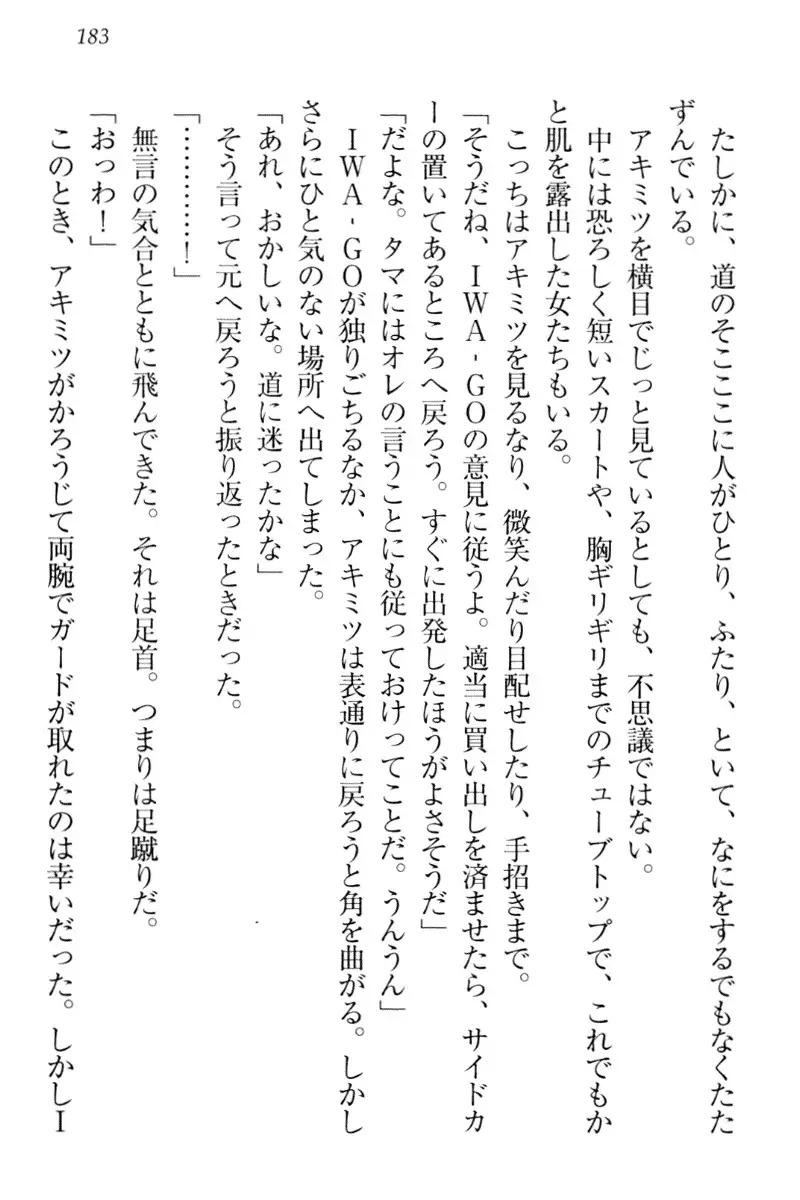 183
たしかに、道のそここに人がひとり、ふたり、といて、なにをするでもなくたた
ずんでいる。
アキミツを横目でじっと見ているとしても、不思議ではない。
中には恐ろしく短いスカートや、胸ギリギリまでのチューブトップで、これでもか
と肌を露出した女たちもいる。
こっちはアキミツを見るなり、微笑んだり目配せしたり、手招きまで。
「そうだね、IWA-GOの意見に従うよ。適当に買い出しを済ませたら、サイドカ
ーの置いてあるところへ戻ろう。すぐに出発したほうがよさそうだ」
「だよな。タマにはオレの言うことにも従っておけってことだ。うんうん」
IWA-GOが独りごちるなか、アキミツは表通りに戻ろうと角を曲がる。しかし
さらにひと気のない場所へ出てしまった。
「あれ、おかしいな。道に迷ったかな」
そう言って元へ戻ろうと振り返ったときだった。
「…………！」
無言の気合とともに飛んできた。それは足首。つまりは足蹴りだ。
「おっわ！」
このとき、アキミツがかろうじて両腕でガードが取れたのは幸いだった。しかしI